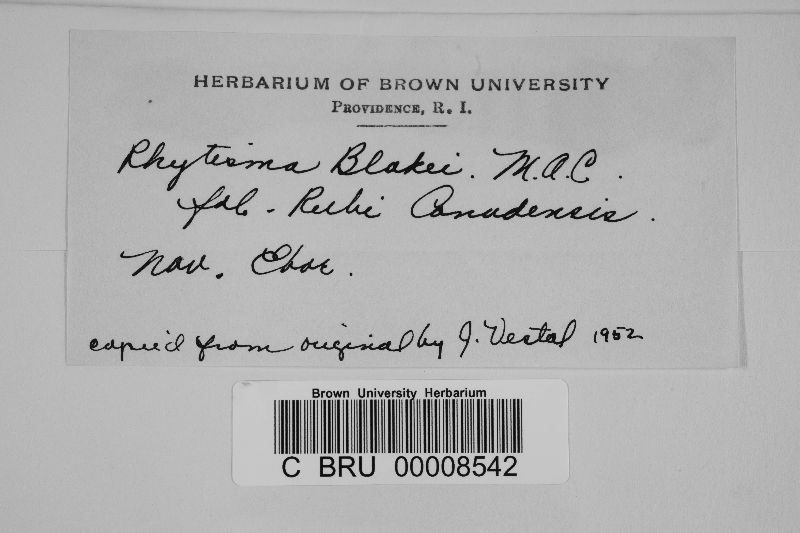 HERBARIUM OF BROWN UNIVERSITY
PROVIDENCE, R. I.
Rhytisma Blakei. M.A.C.
fol. Rubi Canadensis.
Nov. Eboe.
copied from original by J. Vestal 1952
Brown University Herbarium
C BRU 00008542